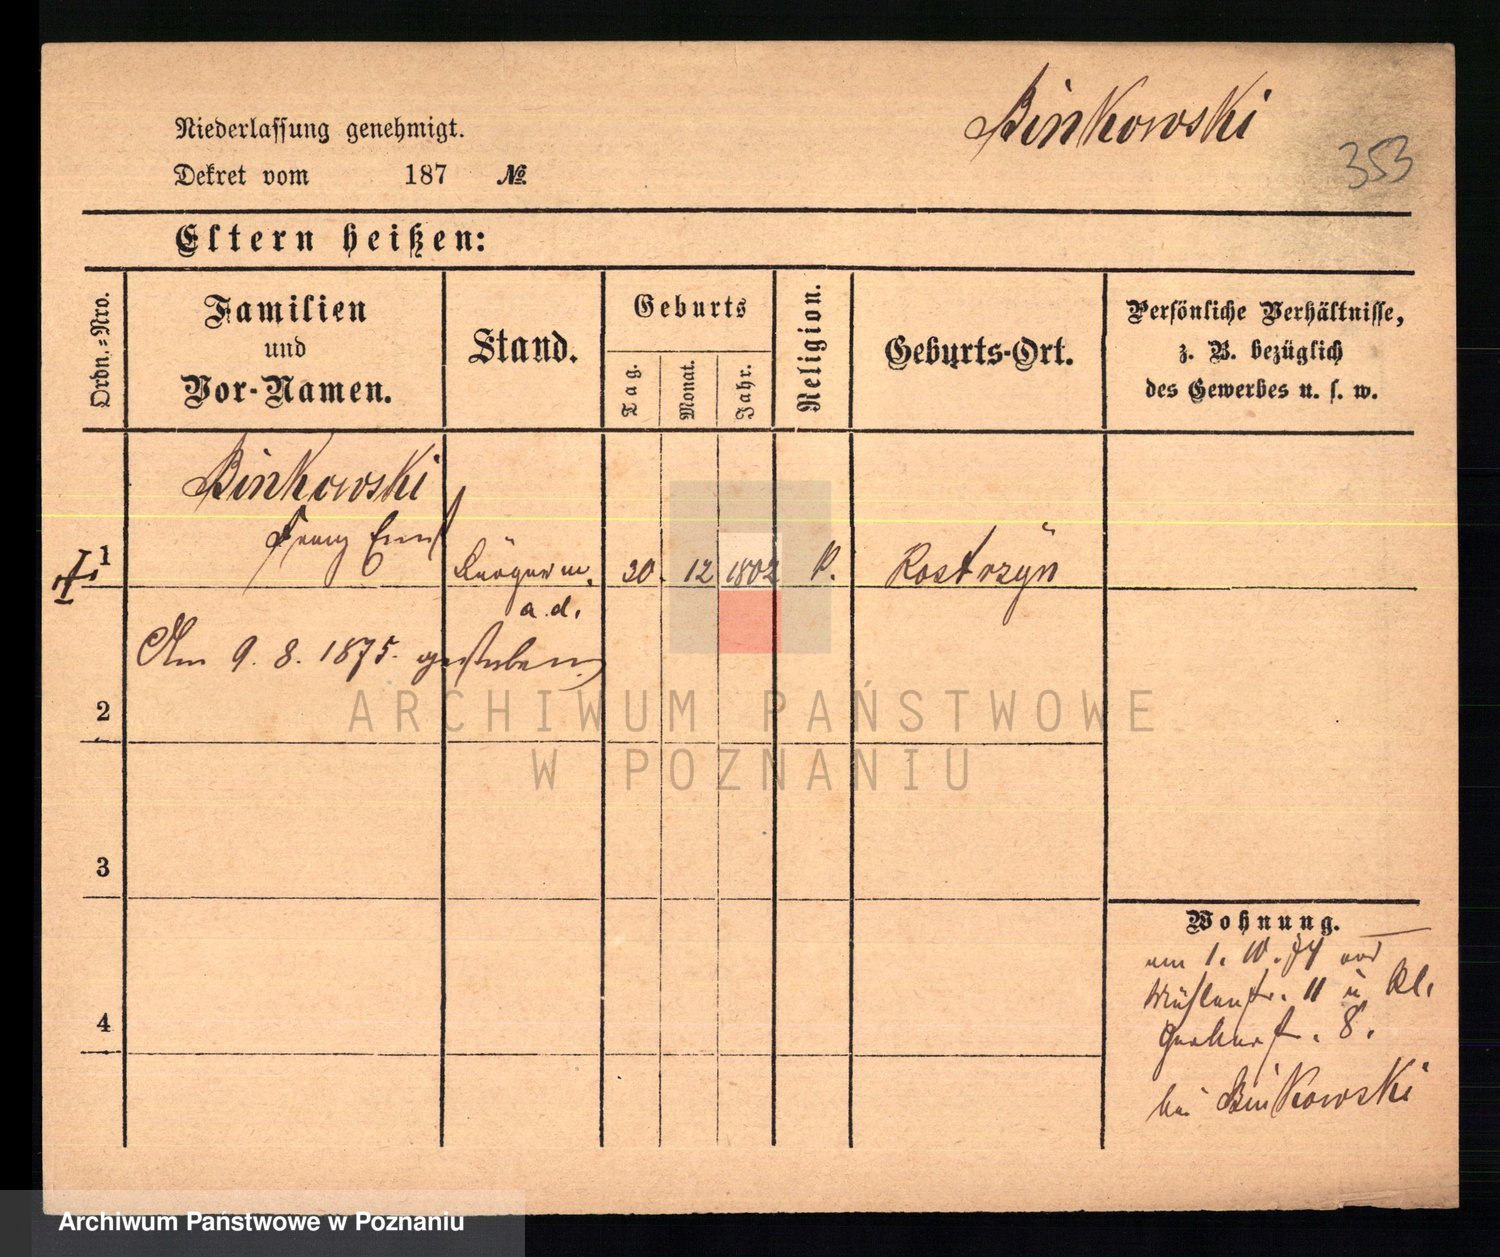 Binkowski
353
Niederlassung genehmigt.
Dekret vom 187 №
Eltern heißen:
Ordn.=Nro.
Familien
und
Vor-Namen.
Stand.
Geburts
Tag.
Monat.
Jahr.
Religion.
Geburts-Ort.
Persönliche Verhältnisse,
z. B. bezüglich
des Gewerbes u. s. w.
Binkowski
Franz
1
30. 12 1802
Kostrzyn
a. d.
Am 9. 8. 1875. gestorben
2
3
4
Wohnung.
am 1. 10. 74
Mühlenstr. 11 u Kl.
Gerberstr. 8.
bei Binkowski
ARCHIWUM PAŃSTWOWE
W POZNANIU
Archiwum Państwowe w Poznaniu